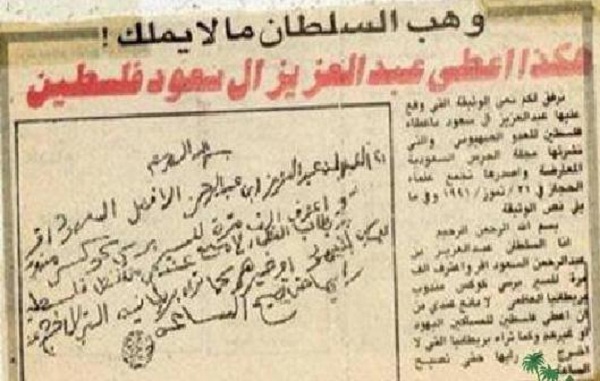 وهب السلطان ما لا يملك !
هكذا اعطى عبدالعزيز ال سعود فلسطين
نرفق لكم نص الوثيقة التى وقع
عليها عبدالعزيز ال سعود باعطاء
فلسطين للعدو الصهيونى والتى
نشرتها مجلة الحرس السعودية
المعارضة واصدرها تجمع علماء
الحجاز فى ٢١/تموز/١٩٩١ وفى ما
يلى نص الوثيقة
بسم الله الرحمن الرحيم
انا السلطان عبدالعزيز بن
عبدالرحمن السعود اقر واعترف الف
مرة للسير برسى كوكس مندوب
بريطانيا العظمى لا مانع عندى من
ان اعطى فلسطين للمساكين اليهود
او غيرهم وكما تراه بريطانيا التى لا
اخرج رايها حتى تصيح
الساعة
بسم الله الرحمن الرحيم
انا السلطان عبدالعزيز ابن عبدالرحمن ال السعود اقر
و اعترف الف مرة للسير برسي كوكس مندوب
بريطانيا العظما لا مانع عندي
بريطانيه التي لا اخرج
رايها حتى تصيح الساعه